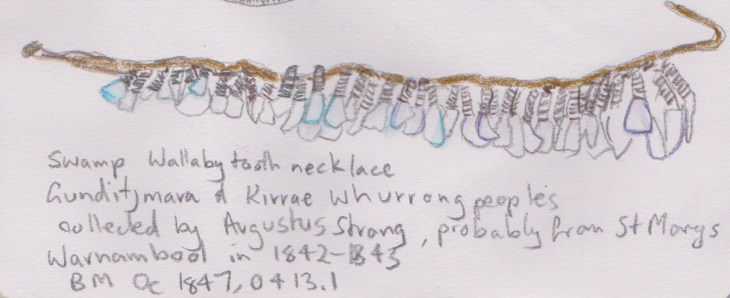 Swamp Wallaby tooth necklace
Gunditjmara & Kirrae Whurrong people's
collected by Augustus Strong, probably from St Marys
Warnambool in 1842-1843
BM Oc 1847,0413.1